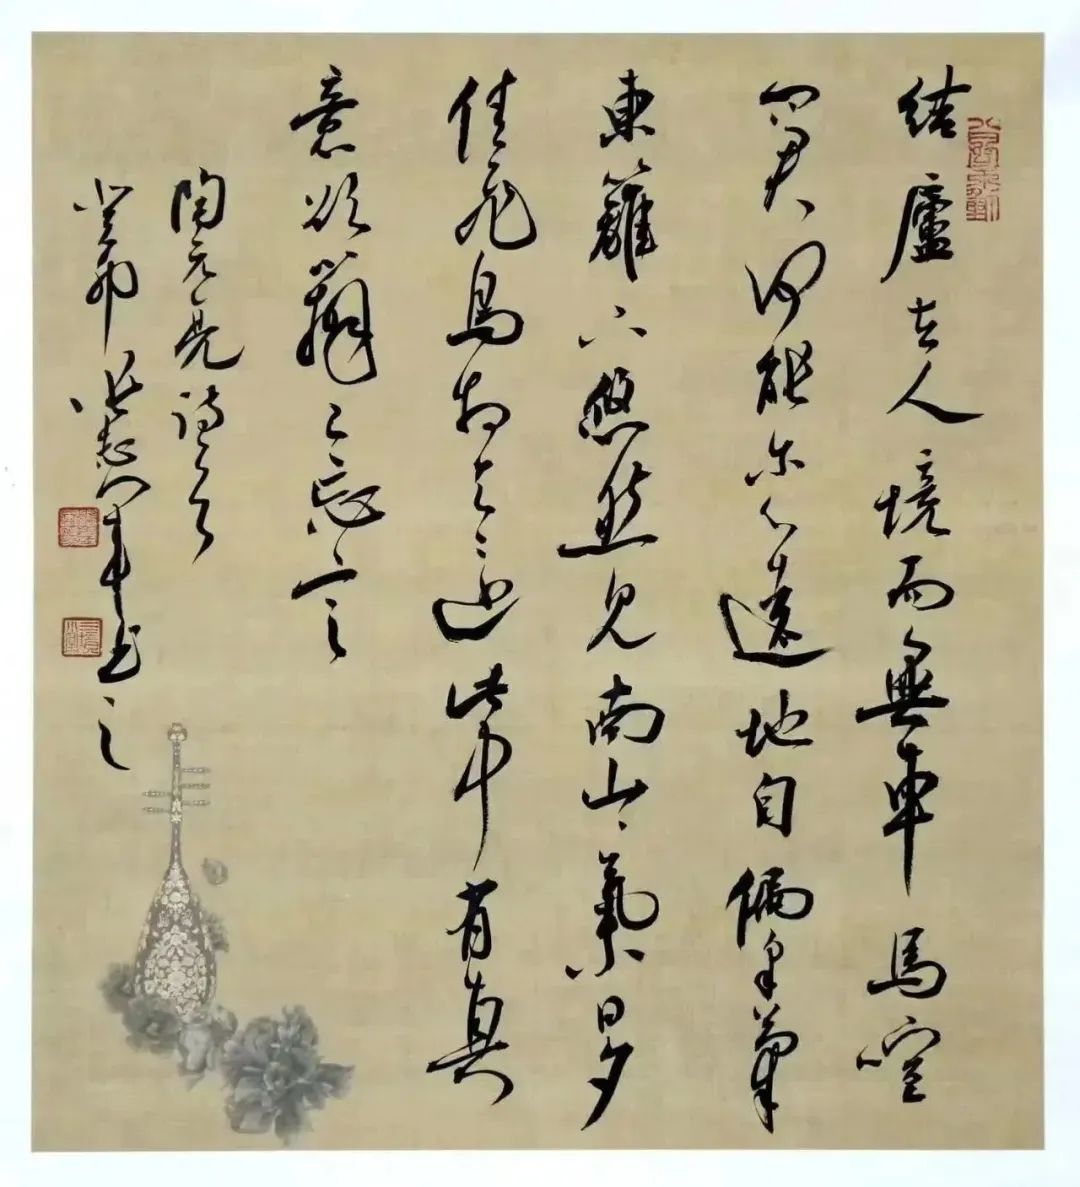 結廬在人境而無車馬喧
問君何能尔心遠地自偏采菊
東籬下悠然見南山々氣日夕
佳飛鳥相與還此中有真
意欲辯已忘言
陶元亮詩一首
癸卯張志軍书之